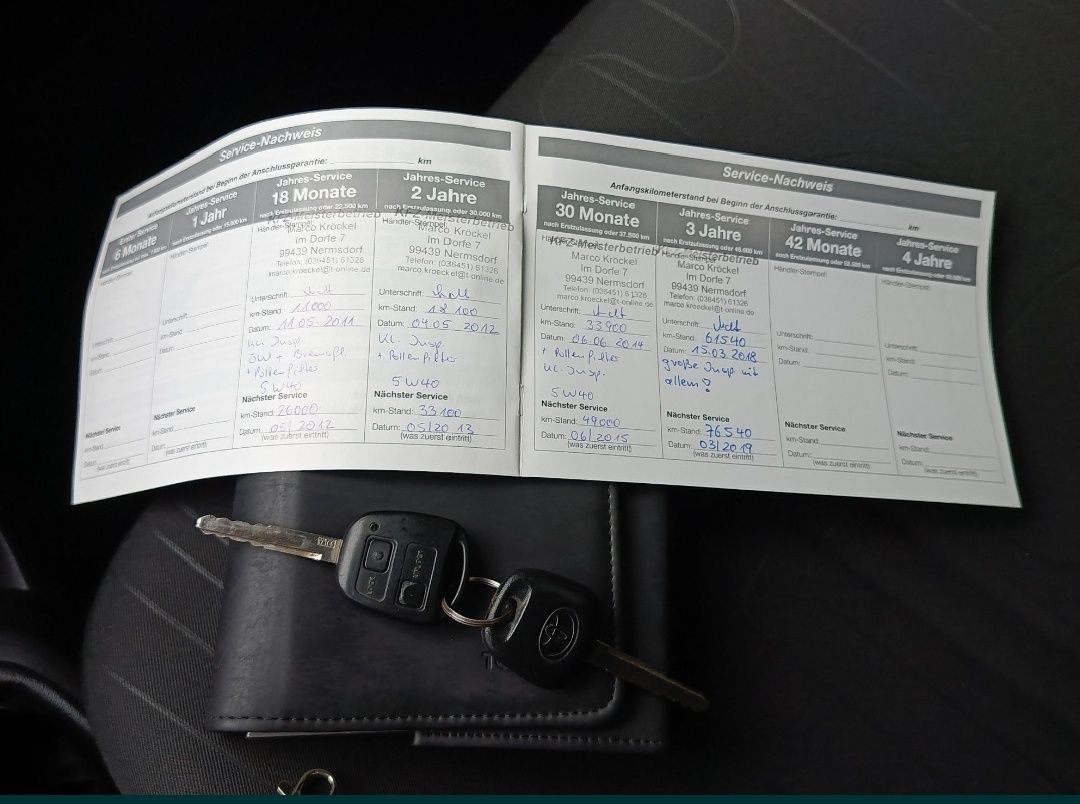 Service-Nachweis
Anfangskilometerstand bei Beginn der Anschlussgarantie: km
Erster Service
6 Monate
Händler-Stempel:
Unterschrift:
km-Stand:
Datum:
Nächster Service
km-Stand:
Datum:
(was zuerst eintritt)
Jahres-Service
1 Jahr
nach Erstzulassung oder 15.000 km
Händler-Stempel:
Unterschrift:
km-Stand:
Datum:
Nächster Service
km-Stand:
Datum:
(was zuerst eintritt)
Jahres-Service
18 Monate
nach Erstzulassung oder 22.500 km
Händler-Stempel:
KFZ-Meisterbetrieb
Marco Kröckel
Im Dorfe 7
99439 Nermsdorf
Telefon: (036451) 61326
marco.kroeckel@t-online.de
Unterschrift:
km-Stand: 11000
Datum: 11.05 2011
kl. Insp.
ÖW + Bremsfl.
+ Pollenfilter
5W40
Nächster Service
km-Stand: 26000
Datum: 05/2012
(was zuerst eintritt)
Jahres-Service
2 Jahre
nach Erstzulassung oder 30.000 km
Händler-Stempel:
KFZ-Meisterbetrieb
Marco Kröckel
Im Dorfe 7
99439 Nermsdorf
Telefon: (036451) 61326
marco.kroeckel@t-online.de
Unterschrift:
km-Stand: 18 100
Datum: 04.05 2012
kl. Insp.
+ Pollenfilter
5W40
Nächster Service
km-Stand: 33 100
Datum: 05/20 13
(was zuerst eintritt)
Service-Nachweis
Anfangskilometerstand bei Beginn der Anschlussgarantie: km
Jahres-Service
30 Monate
nach Erstzulassung oder 37.500 km
KFZ-Meisterbetrieb
Marco Kröckel
Im Dorfe 7
99439 Nermsdorf
Telefon: (036451) 61326
marco.kroeckel@t-online.de
Unterschrift:
km-Stand: 33900
Datum: 06.06 2014
+ Pollenfilter
kl. Insp.
5W40
Nächster Service
km-Stand: 49000
Datum: 06/2015
(was zuerst eintritt)
Jahres-Service
3 Jahre
nach Erstzulassung oder 45.000 km
Händler-Stempel:
KFZ-Meisterbetrieb
Marco Kröckel
Im Dorfe 7
99439 Nermsdorf
Telefon: (036451) 61326
marco.kroeckel@t-online.de
Unterschrift:
km-Stand: 61540
Datum: 15.03.2018
große Insp mit
allem!
Nächster Service
km-Stand: 76540
Datum: 03/2019
(was zuerst eintritt)
Jahres-Service
42 Monate
nach Erstzulassung oder 52.500 km
Händler-Stempel
Unterschrift:
km-Stand:
Datum:
Nächster Service
km-Stand:
Datum:
(was zuerst eintritt)
Jahres-Service
4 Jahre
nach Erstzulassung oder 60.000 km
Händler-Stempel:
Unterschrift:
km-Stand:
Datum:
Nächster Service
km-Stand:
Datum:
(was zuerst eintritt)